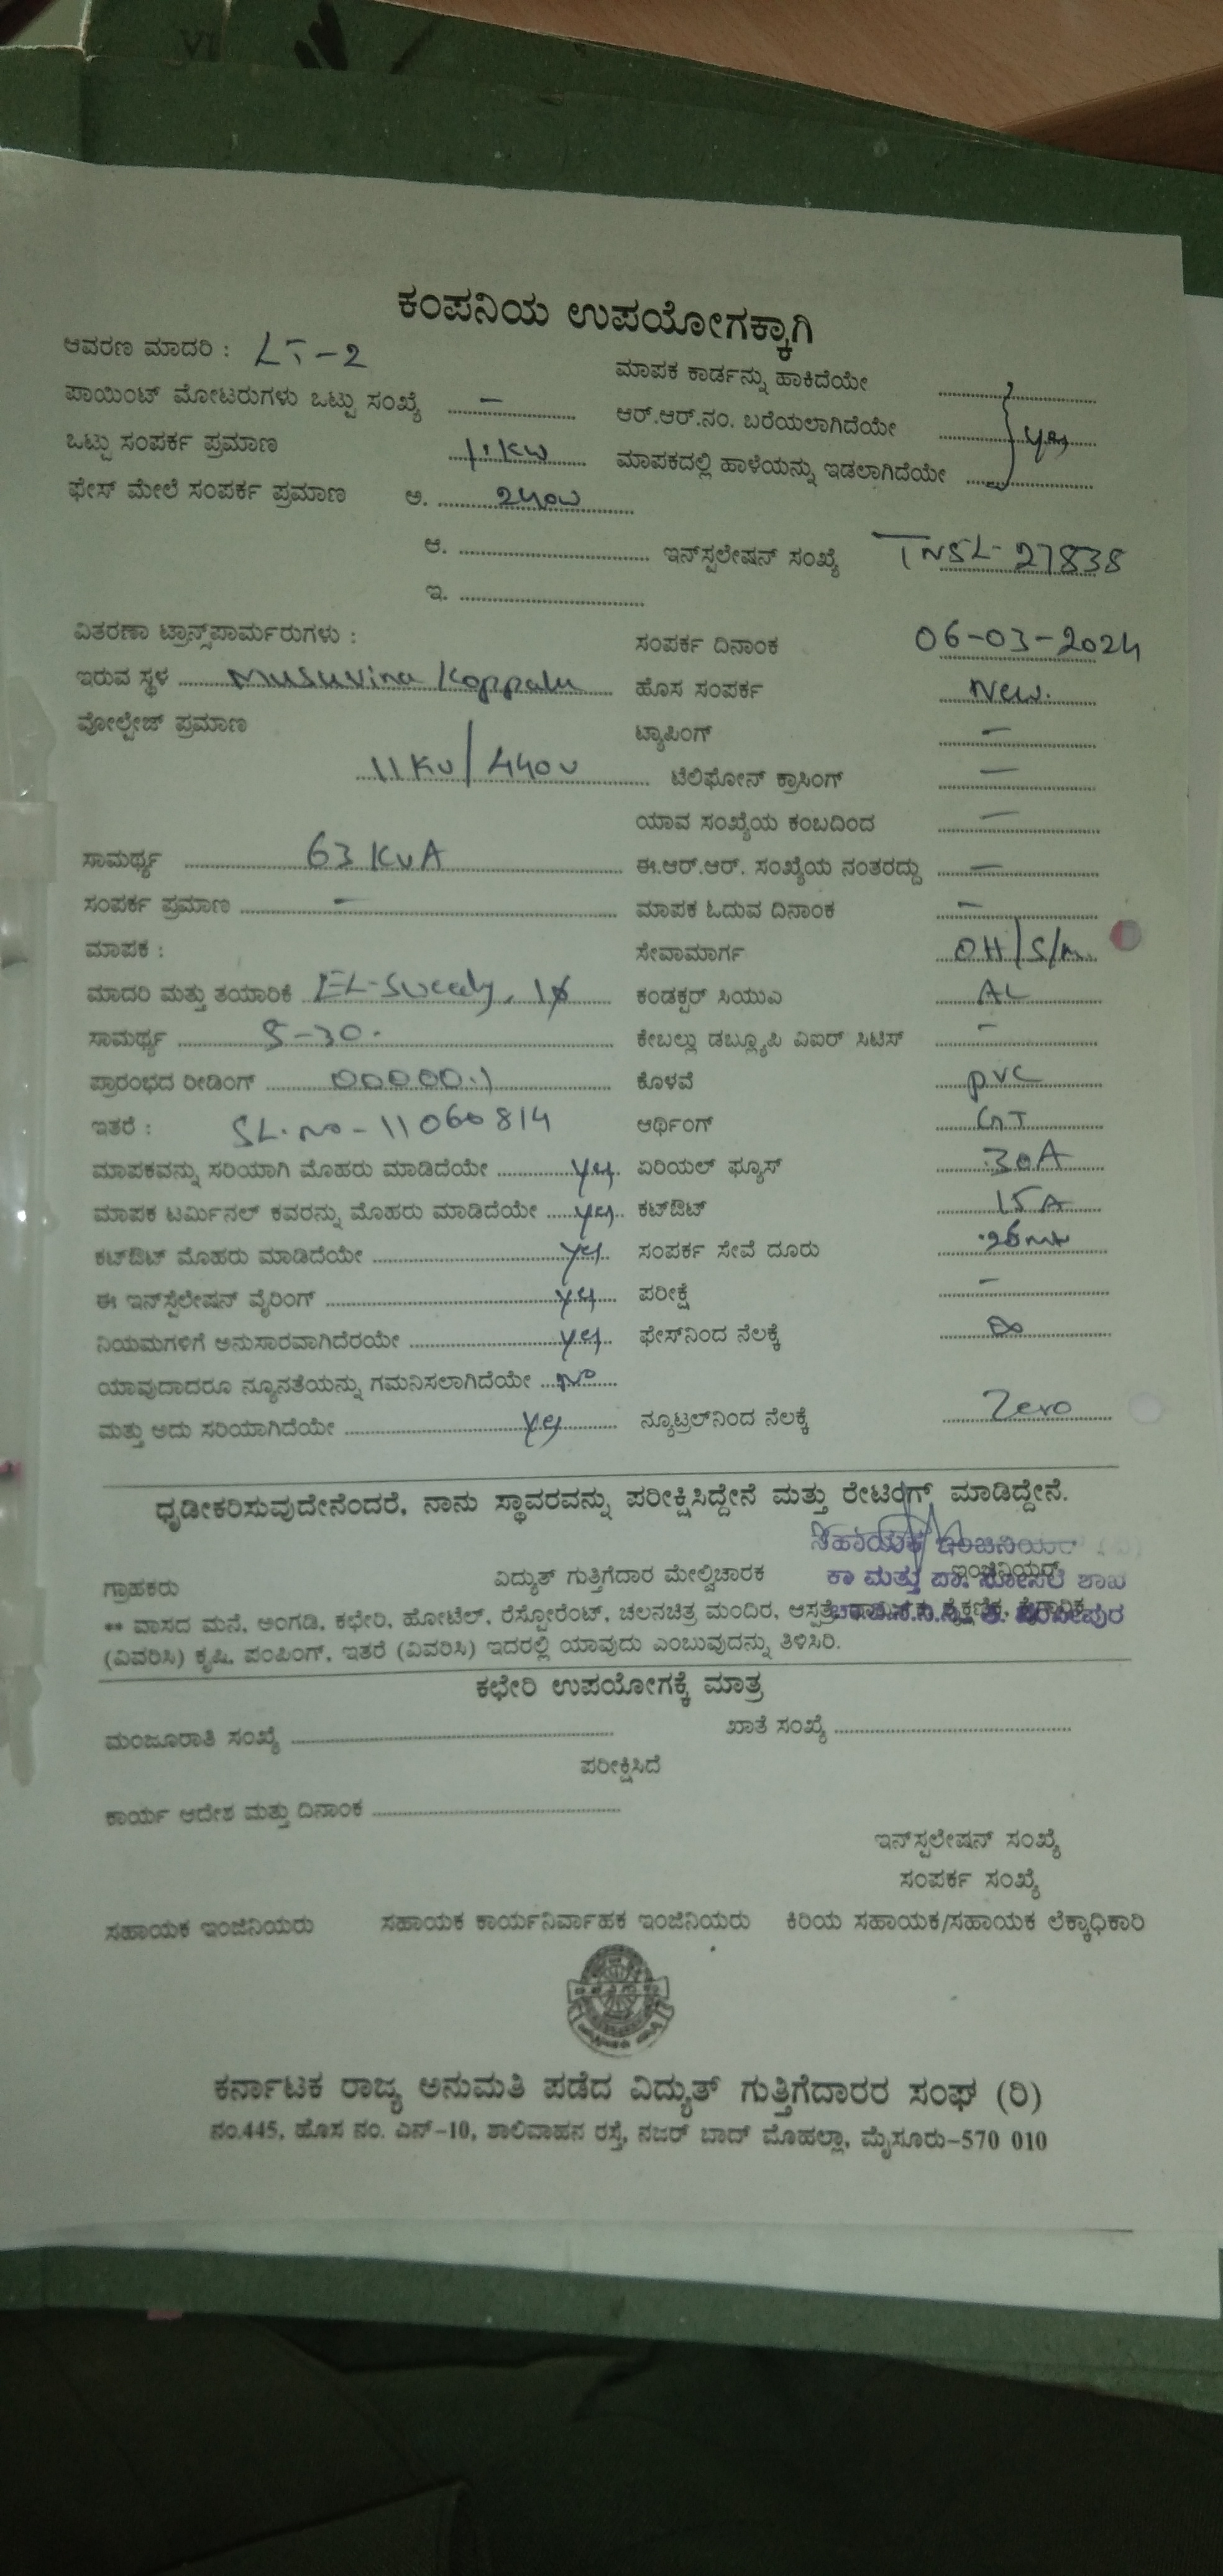 ಕಂಪನಿಯ ಉಪಯೋಗಕ್ಕಾಗಿ
ಆವರಣ ಮಾದರಿ : LT-2
ಮಾಪಕ ಕಾರ್ಡನ್ನು ಹಾಕಿದೆಯೇ
ಪಾಯಿಂಟ್ ಮೋಟರುಗಳು ಒಟ್ಟು ಸಂಖ್ಯೆ –
ಆರ್.ಆರ್.ನಂ. ಬರೆಯಲಾಗಿದೆಯೇ yes
ಒಟ್ಟು ಸಂಪರ್ಕ ಪ್ರಮಾಣ 1.1KW
ಮಾಪಕದಲ್ಲಿ ಹಾಳೆಯನ್ನು ಇಡಲಾಗಿದೆಯೇ
ಫೇಸ್ ಮೇಲೆ ಸಂಪರ್ಕ ಪ್ರಮಾಣ ಅ. 240v
ಆ. ಇನ್‌ಸ್ಪಲೇಷನ್ ಸಂಖ್ಯೆ TNSL-27838
ಇ.
ವಿತರಣಾ ಟ್ರಾನ್ಸ್‌ಪಾರ್ಮರುಗಳು : ಸಂಪರ್ಕ ದಿನಾಂಕ 06-03-2024
ಇರುವ ಸ್ಥಳ Musuvina Koppalu ಹೊಸ ಸಂಪರ್ಕ New.
ವೋಲ್ಟೇಜ್ ಪ್ರಮಾಣ ಟ್ಯಾಪಿಂಗ್ –
11KV/440v ಟೆಲಿಫೋನ್ ಕ್ರಾಸಿಂಗ್ –
ಯಾವ ಸಂಖ್ಯೆಯ ಕಂಬದಿಂದ –
ಸಾಮರ್ಥ್ಯ 63 KVA ಈ.ಆರ್.ಆರ್. ಸಂಖ್ಯೆಯ ನಂತರದ್ದು –
ಸಂಪರ್ಕ ಪ್ರಮಾಣ – ಮಾಪಕ ಓದುವ ದಿನಾಂಕ –
ಮಾಪಕ : ಸೇವಾಮಾರ್ಗ OH/S/M.
ಮಾದರಿ ಮತ್ತು ತಯಾರಿಕೆ EL-Sweedy, 1ϕ ಕಂಡಕ್ಟರ್ ಸಿಯುಎ AL
ಸಾಮರ್ಥ್ಯ 5-30. ಕೇಬಲ್ಲು ಡಬ್ಲ್ಯೂಪಿ ಎಐರ್ ಸಿಟಿಸ್ –
ಪ್ರಾರಂಭದ ರೀಡಿಂಗ್ 00000.1 ಕೊಳವೆ pvc
ಇತರೆ : SL.no-11060814 ಆರ್ಥಿಂಗ್
ಮಾಪಕವನ್ನು ಸರಿಯಾಗಿ ಮೊಹರು ಮಾಡಿದೆಯೇ yes. ಏರಿಯಲ್ ಫ್ಯೂಸ್ 30A
ಮಾಪಕ ಟರ್ಮಿನಲ್ ಕವರನ್ನು ಮೊಹರು ಮಾಡಿದೆಯೇ yes ಕಟ್‌ಔಟ್ 15A
ಕಟ್‌ಔಟ್ ಮೊಹರು ಮಾಡಿದೆಯೇ yes ಸಂಪರ್ಕ ಸೇವೆ ದೂರು
ಈ ಇನ್‌ಸ್ಪೆಲೇಷನ್ ವೈರಿಂಗ್ yes ಪರೀಕ್ಷೆ –
ನಿಯಮಗಳಿಗೆ ಅನುಸಾರವಾಗಿದೆರಯೇ yes ಫೇಸ್‌ನಿಂದ ನೆಲಕ್ಕೆ ∞
ಯಾವುದಾದರೂ ನ್ಯೂನತೆಯನ್ನು ಗಮನಿಸಲಾಗಿದೆಯೇ No
ಮತ್ತು ಅದು ಸರಿಯಾಗಿದೆಯೇ yes ನ್ಯೂಟ್ರಲ್‌ನಿಂದ ನೆಲಕ್ಕೆ Zero
ಧೃಡೀಕರಿಸುವುದೇನೆಂದರೆ, ನಾನು ಸ್ಥಾವರವನ್ನು ಪರೀಕ್ಷಿಸಿದ್ದೇನೆ ಮತ್ತು ರೇಟಿಂಗ್ ಮಾಡಿದ್ದೇನೆ.
ಸಹಾಯಕ ಇಂಜಿನಿಯರ್
ಗ್ರಾಹಕರು ವಿದ್ಯುತ್ ಗುತ್ತಿಗೆದಾರ ಮೇಲ್ವಿಚಾರಕ ಇಂಜಿನಿಯರ್
ಕಾ ಮತ್ತು ಪಾ. ಸೋಸಲೆ ಶಾಖೆ
** ವಾಸದ ಮನೆ, ಅಂಗಡಿ, ಕಛೇರಿ, ಹೋಟೆಲ್, ರೆಸ್ಟೋರೆಂಟ್, ಚಲನಚಿತ್ರ ಮಂದಿರ, ಆಸ್ಪತ್ರೆ,
(ವಿವರಿಸಿ) ಕೃಷಿ, ಪಂಪಿಂಗ್, ಇತರೆ (ವಿವರಿಸಿ) ಇದರಲ್ಲಿ ಯಾವುದು ಎಂಬುವುದನ್ನು ತಿಳಿಸಿರಿ.
ಕಛೇರಿ ಉಪಯೋಗಕ್ಕೆ ಮಾತ್ರ
ಮಂಜೂರಾತಿ ಸಂಖ್ಯೆ ಖಾತೆ ಸಂಖ್ಯೆ
ಪರೀಕ್ಷಿಸಿದೆ
ಕಾರ್ಯ ಆದೇಶ ಮತ್ತು ದಿನಾಂಕ
ಇನ್‌ಸ್ಪಲೇಷನ್ ಸಂಖ್ಯೆ
ಸಂಪರ್ಕ ಸಂಖ್ಯೆ
ಸಹಾಯಕ ಇಂಜಿನಿಯರು ಸಹಾಯಕ ಕಾರ್ಯನಿರ್ವಾಹಕ ಇಂಜಿನಿಯರು ಕಿರಿಯ ಸಹಾಯಕ/ಸಹಾಯಕ ಲೆಕ್ಕಾಧಿಕಾರಿ
ಕರ್ನಾಟಕ ರಾಜ್ಯ ಅನುಮತಿ ಪಡೆದ ವಿದ್ಯುತ್ ಗುತ್ತಿಗೆದಾರರ ಸಂಘ (ರಿ)
ನಂ.445, ಹೊಸ ನಂ. ಎನ್-10, ಶಾಲಿವಾಹನ ರಸ್ತೆ, ನಜರ್ ಬಾದ್ ಮೊಹಲ್ಲಾ, ಮೈಸೂರು-570 010